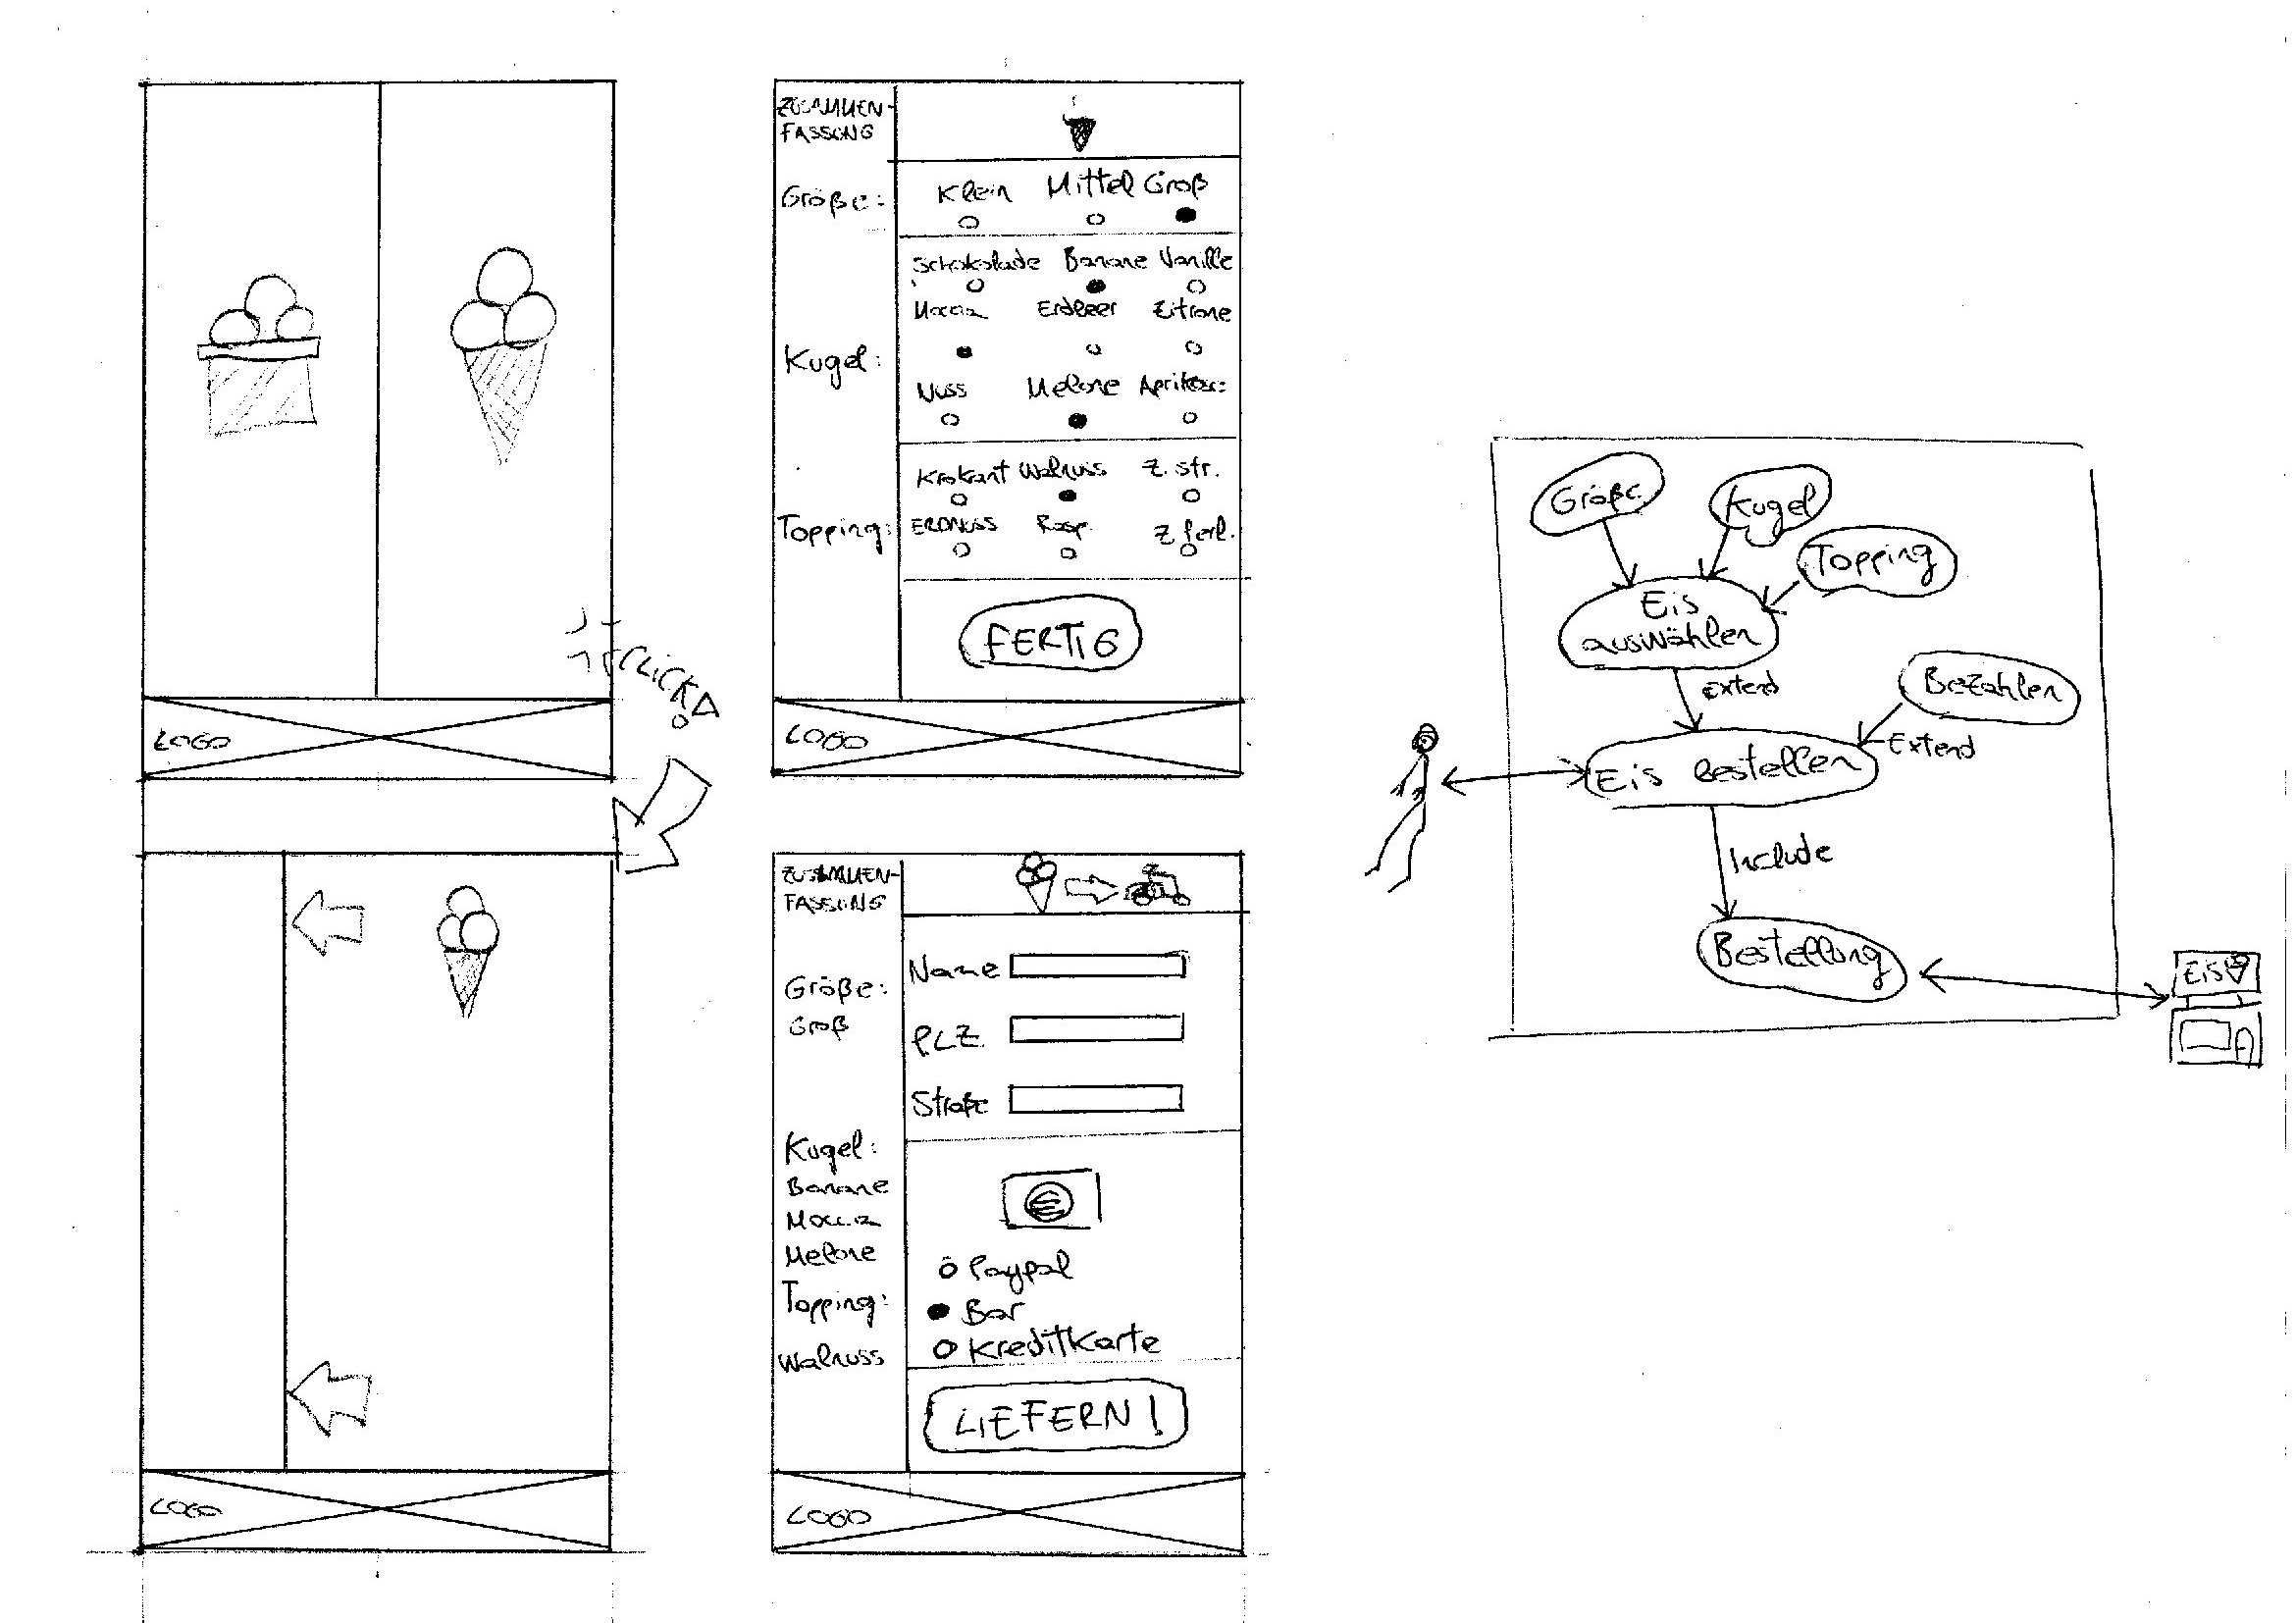 LOGO
CLICK
LOGO
ZUSAMMEN-
FASSUNG
Größe:
Klein Mittel Groß
Kugel:
Schokolade Banane Vanille
Mocca Erdbeer Zitrone
Nuss Melone Aprikose
Topping:
Krokant Walnuss Z. Str.
ERDNUSS Rasp. Z Perl.
FERTIG
LOGO
ZUSAMMEN-
FASSUNG
Größe:
Groß
Kugel:
Banane
Mocca
Melone
Topping:
Walnuss
Name
PLZ
Straße
€
Paypal
Bar
Kreditkarte
LIEFERN!
LOGO
Größe
Kugel
Topping
Eis
auswählen
Extend
Bezahlen
Extend
Eis bestellen
Include
Bestellung
Eis